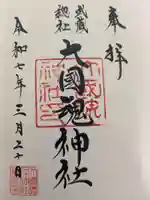 奉拝
武蔵
総社
大國魂神社
令和七年三月二十日